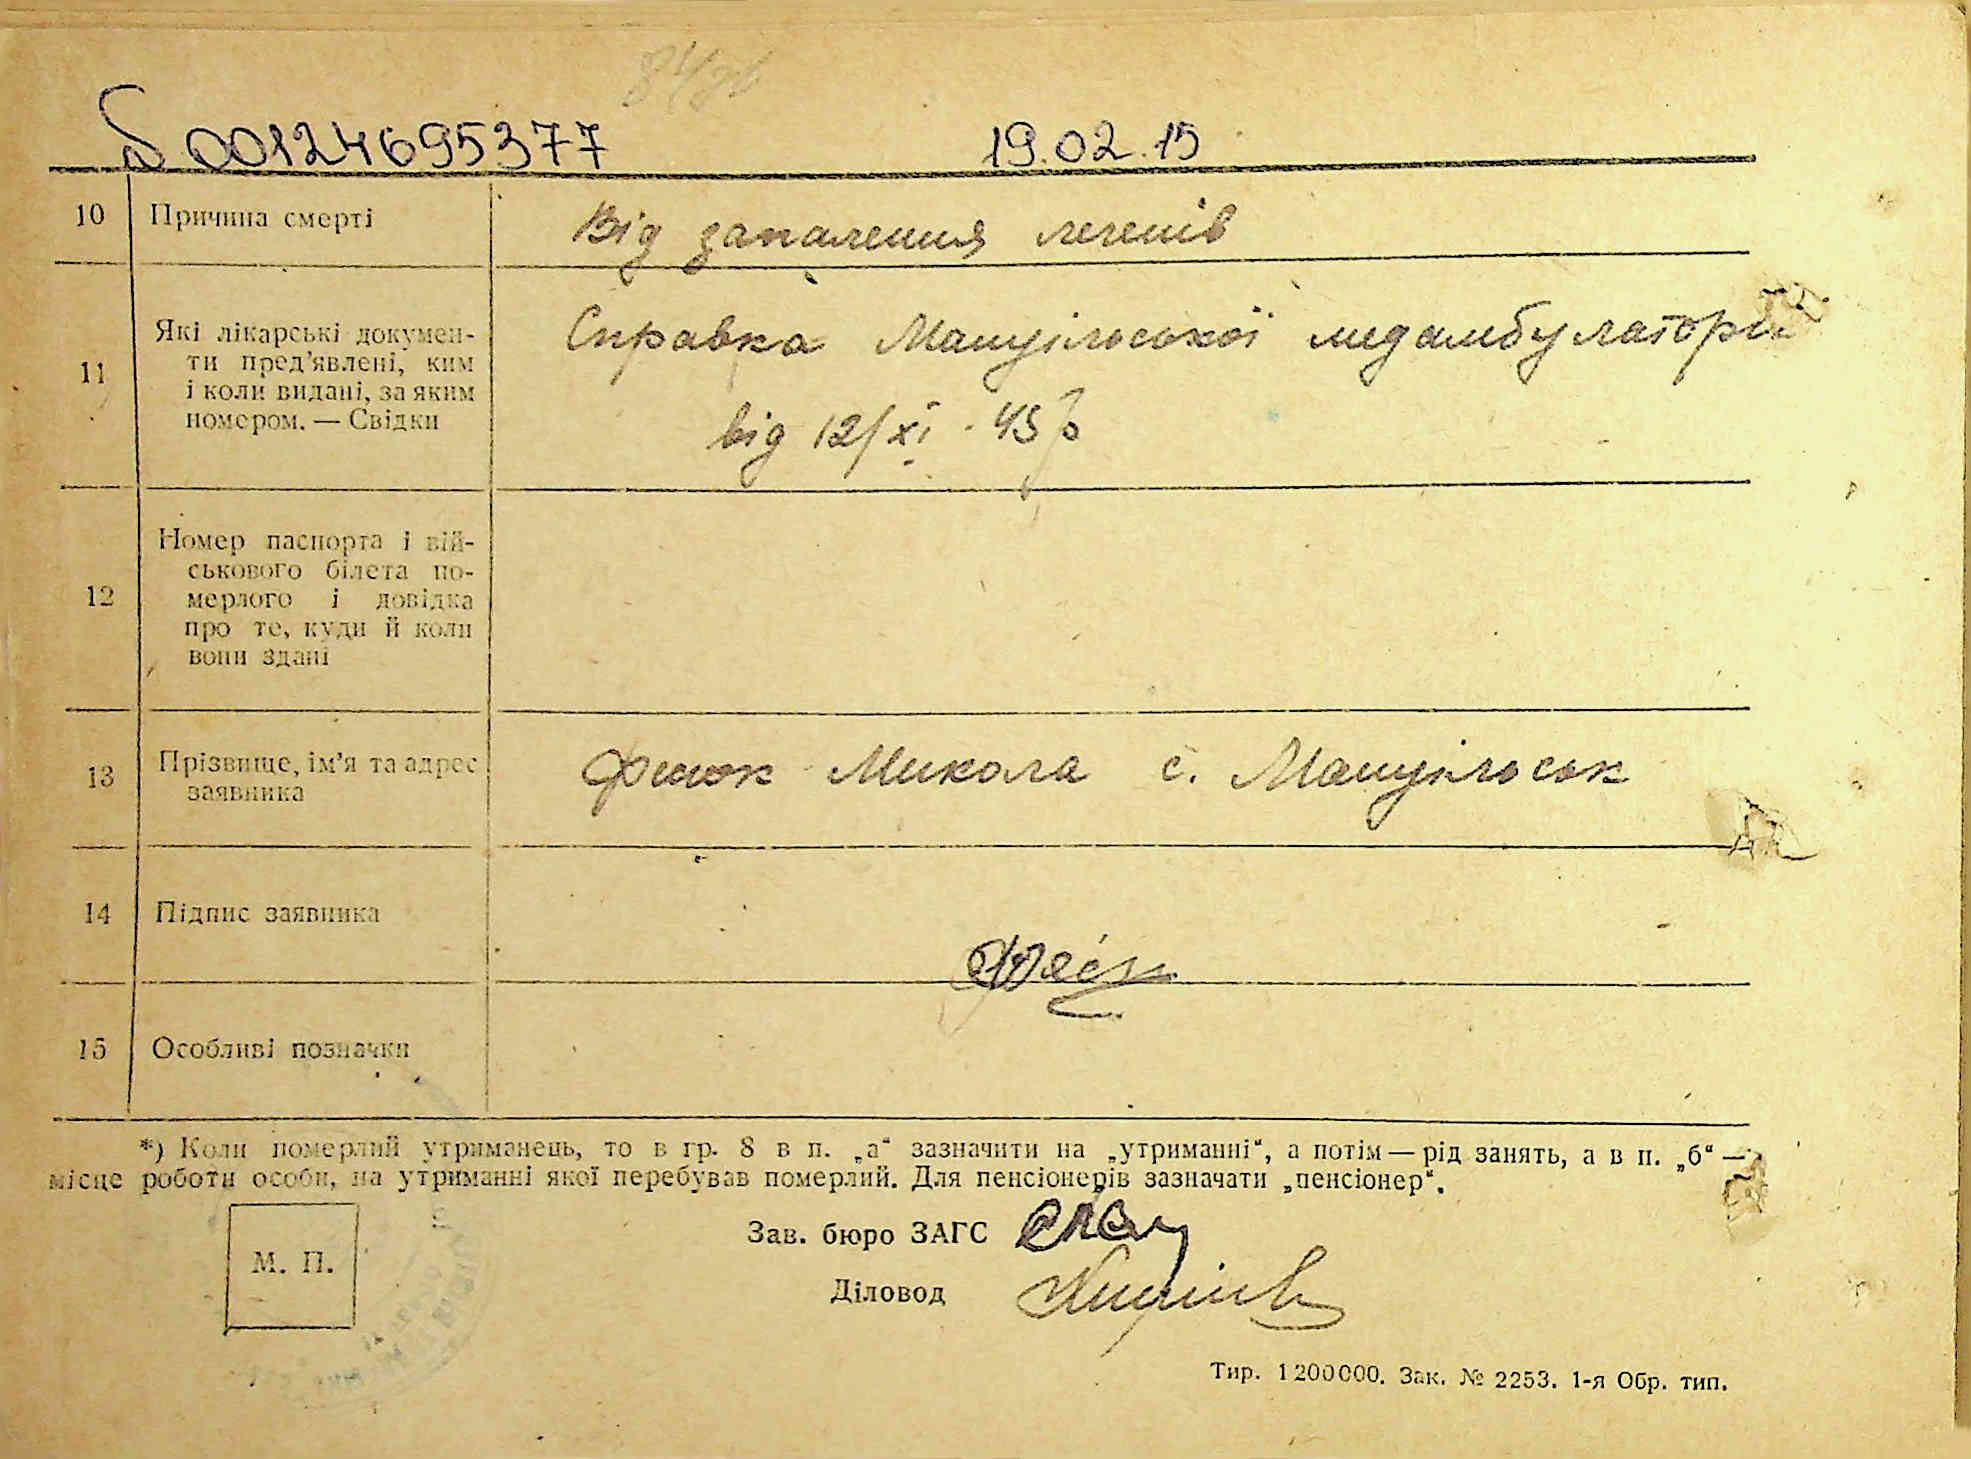 00124695377 19.02.15
10 Причина смерті Від запалення легенів
11 Які лікарські докумен-
ти пред’явлені, ким
і коли видані, за яким
номером. — Свідки
Справка Мануїльської медамбулаторії
від 12/XI - 45 р
12 Номер паспорта і вій-
ськового білета по-
мерлого і довідка
про те, куди й коли
вони здані
13 Прізвище, ім’я та адрес
заявника
Микола с. Мануїльськ
14 Підпис заявника
15 Особливі позначки
*) Коли померлий утриманець, то в гр. 8 в п. „а“ зазначити на „утриманні“, а потім — рід занять, а в п. „б“ —
місце роботи особи, на утриманні якої перебував померлий. Для пенсіонерів зазначати „пенсіонер“.
М. П.
Зав. бюро ЗАГС
Діловод
Тир. 1200000. Зак. № 2253. 1-я Обр. тип.